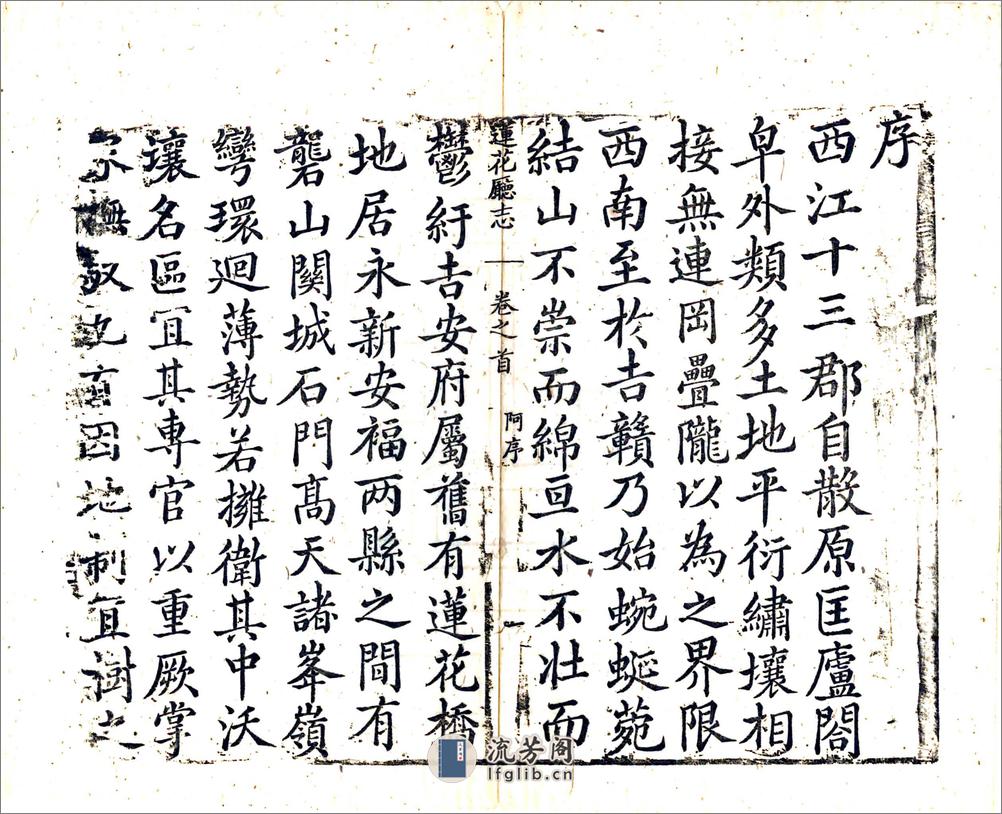 序
西江十三郡自散原匡廬閤
皁外類多土地平衍繡壤相
接無連岡疊隴以為之界限
西南至於吉贛乃始蜿蜒菀
結山不崇而綿亘水不壯而
蓮花廳志
卷之首
阿序
一
鬱紆吉安府屬舊有蓮花橋
地居永新安福两縣之間有
礱山關城石門髙天諸峯嶺
彎環迴薄勢若擁衛其中沃
壤名區宜其專官以重厥掌
因地制宜樹之
流芳阁
lfglib.cn